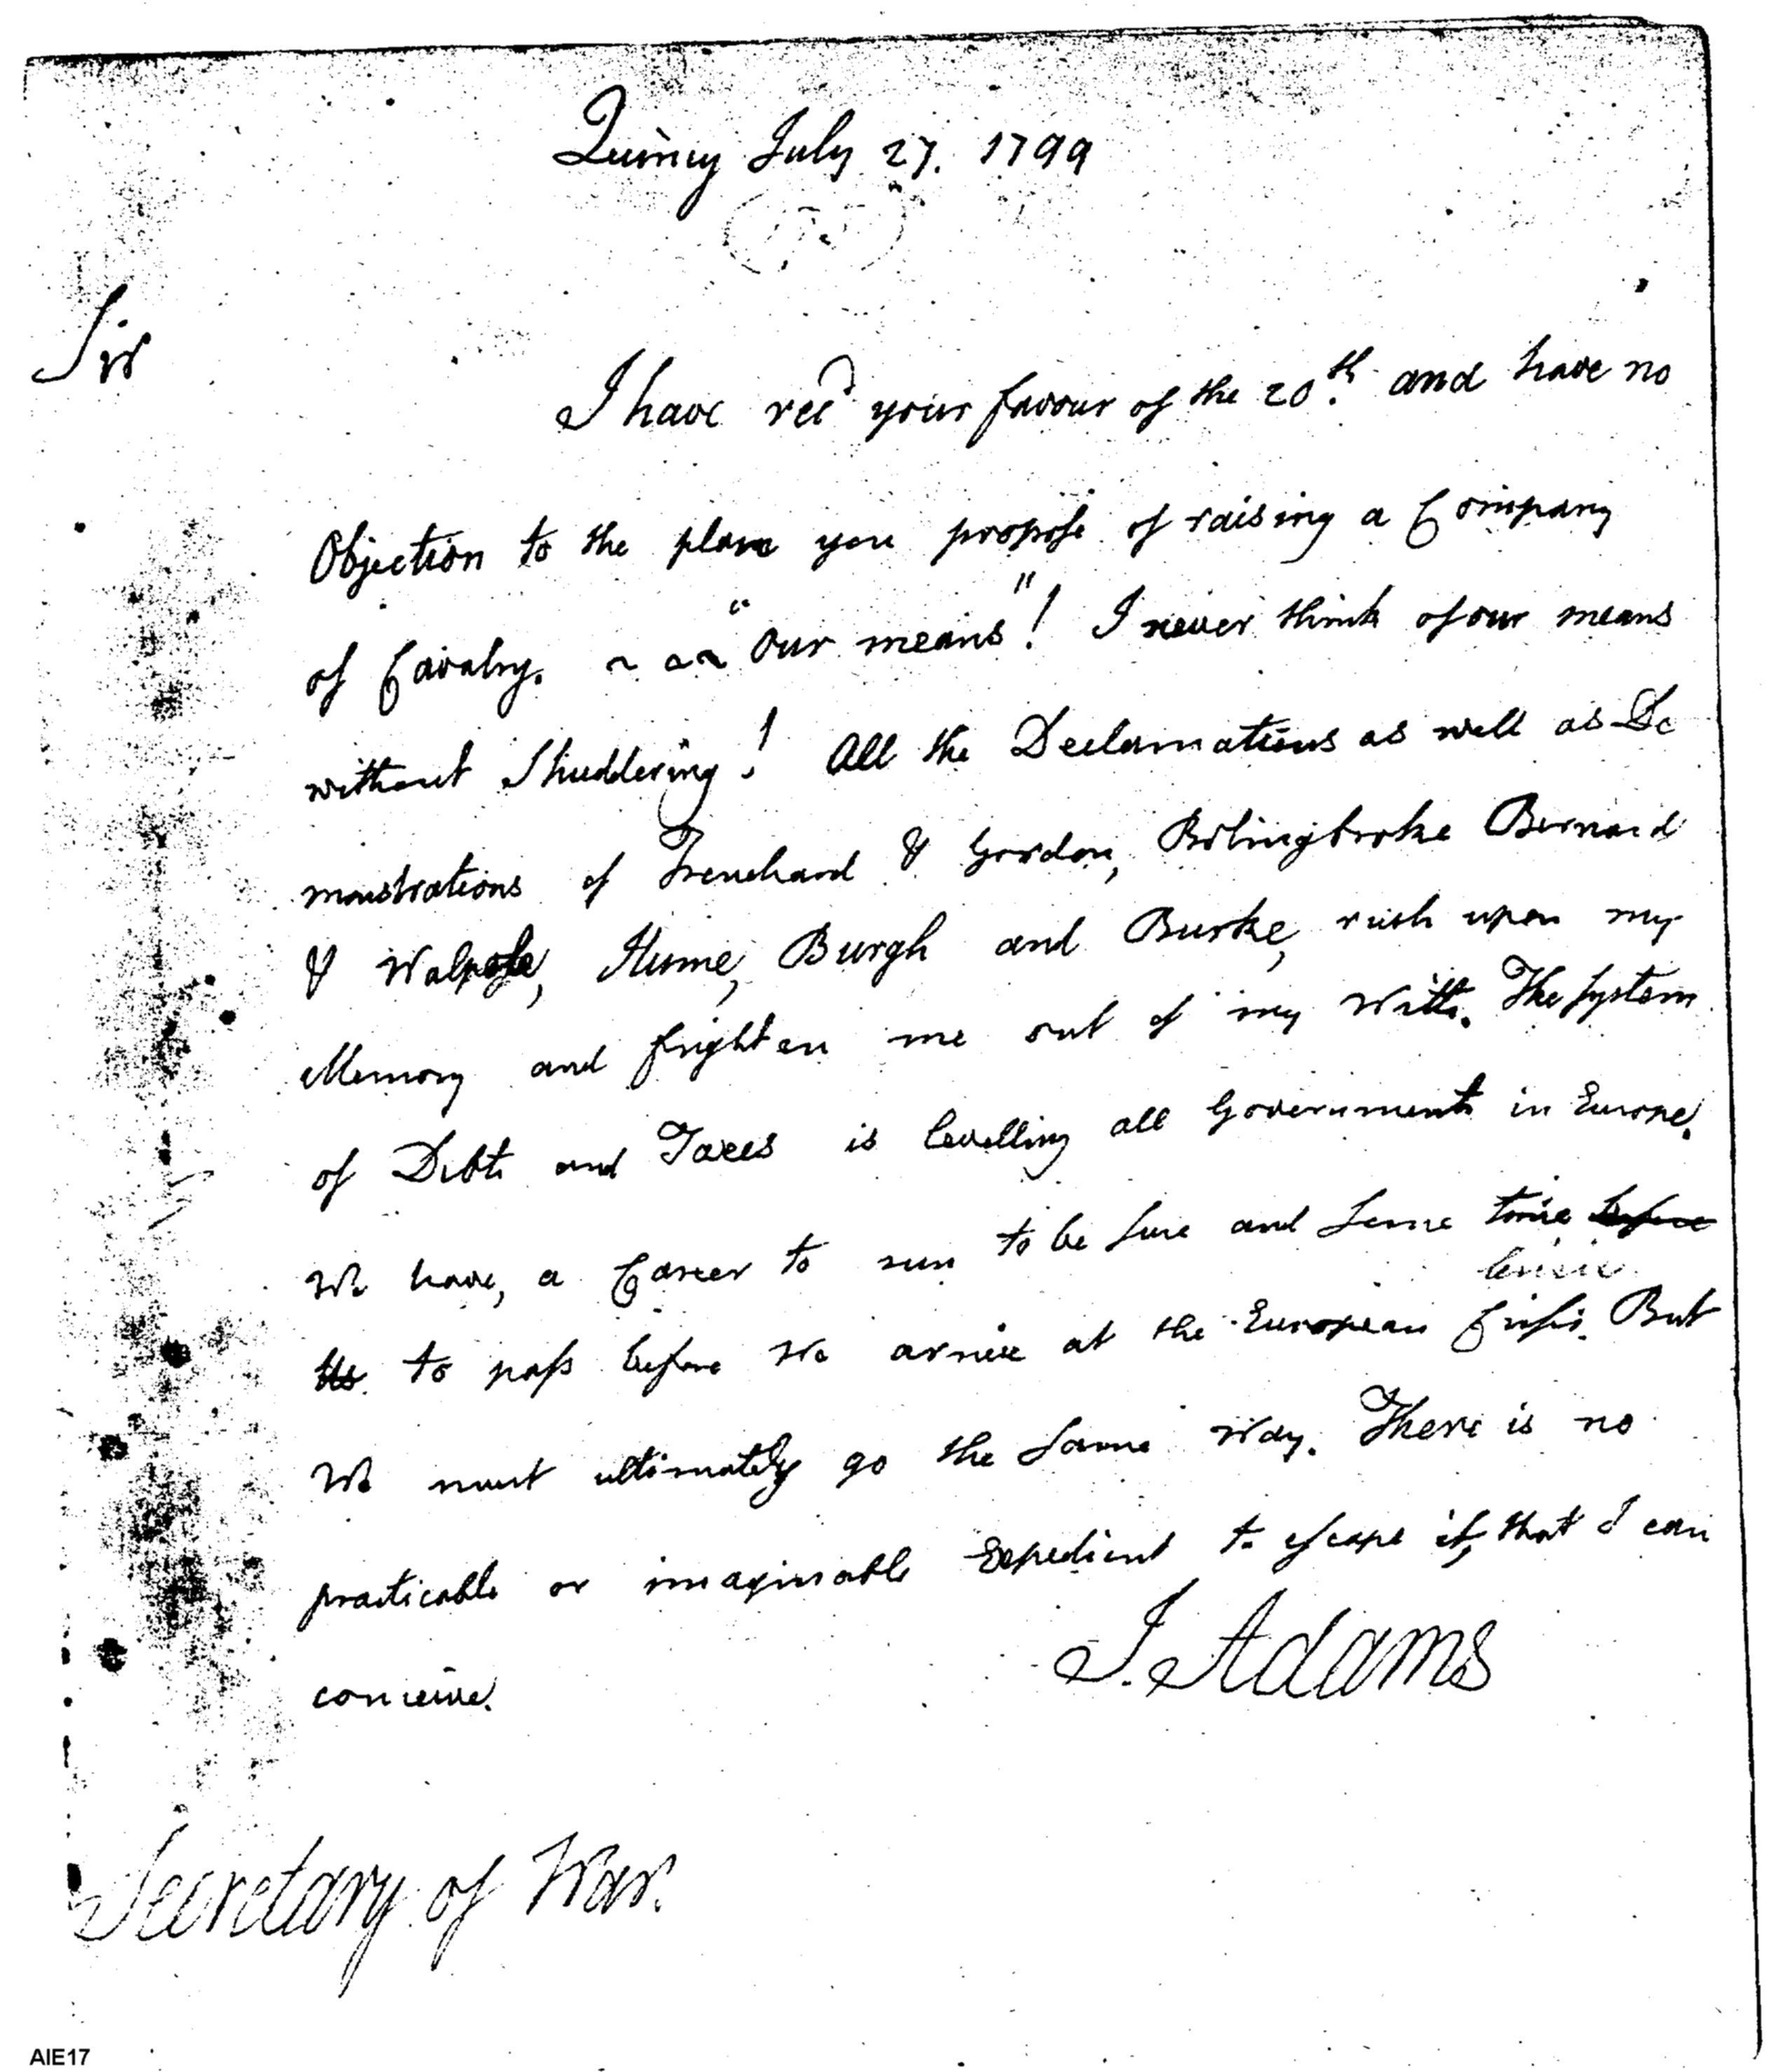 Quincy July 27. 1799
Sir
I have recd your favour of the 20th. and have no
Objection to the plan you propose of raising a Company
of Cavalry. ~ ~~ "our means"! I never think of our means
without Shuddering! All the Declamations as well as De
monstrations of Trenchard & Gordon, Bolingbroke Bernard
& Walpole, Hume, Burgh and Burke, rush upon my
Memory and frighten me out of my Witts. The System
of Debts and Taxes is levelling all Governments in Europe.
We have, a Career to run to be sure and some time before
to pass before We arrive at the European Crisis. But
We must ultimately go the same Way. There is no
practicable or imaginable Expedient to escape it, that I can
conceive.
J. Adams
Secretary of War.
AIE17